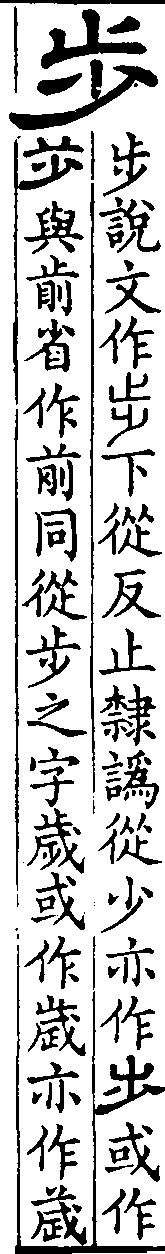 步
步說文作步下從反止隸譌從少亦作步或作
步與歬省作前同從步之字歲或作歲亦作歲